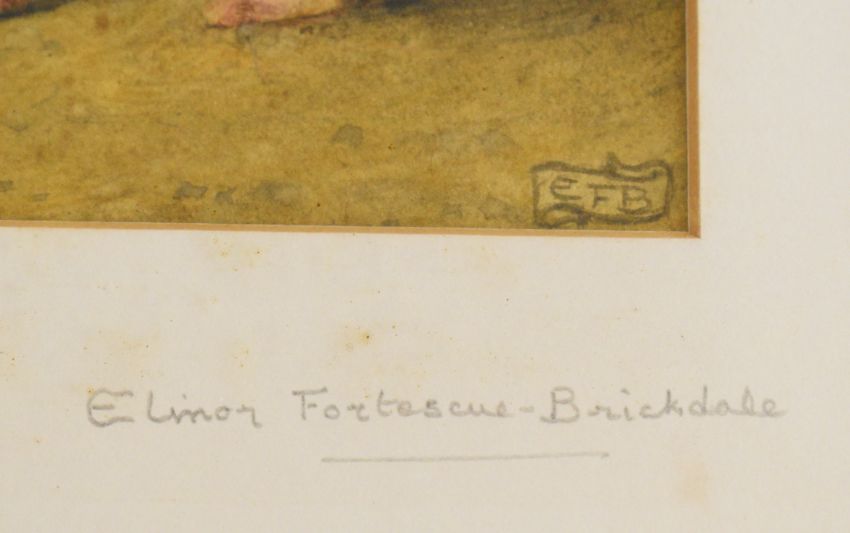 EFB
Elinor Fortescue-Brickdale